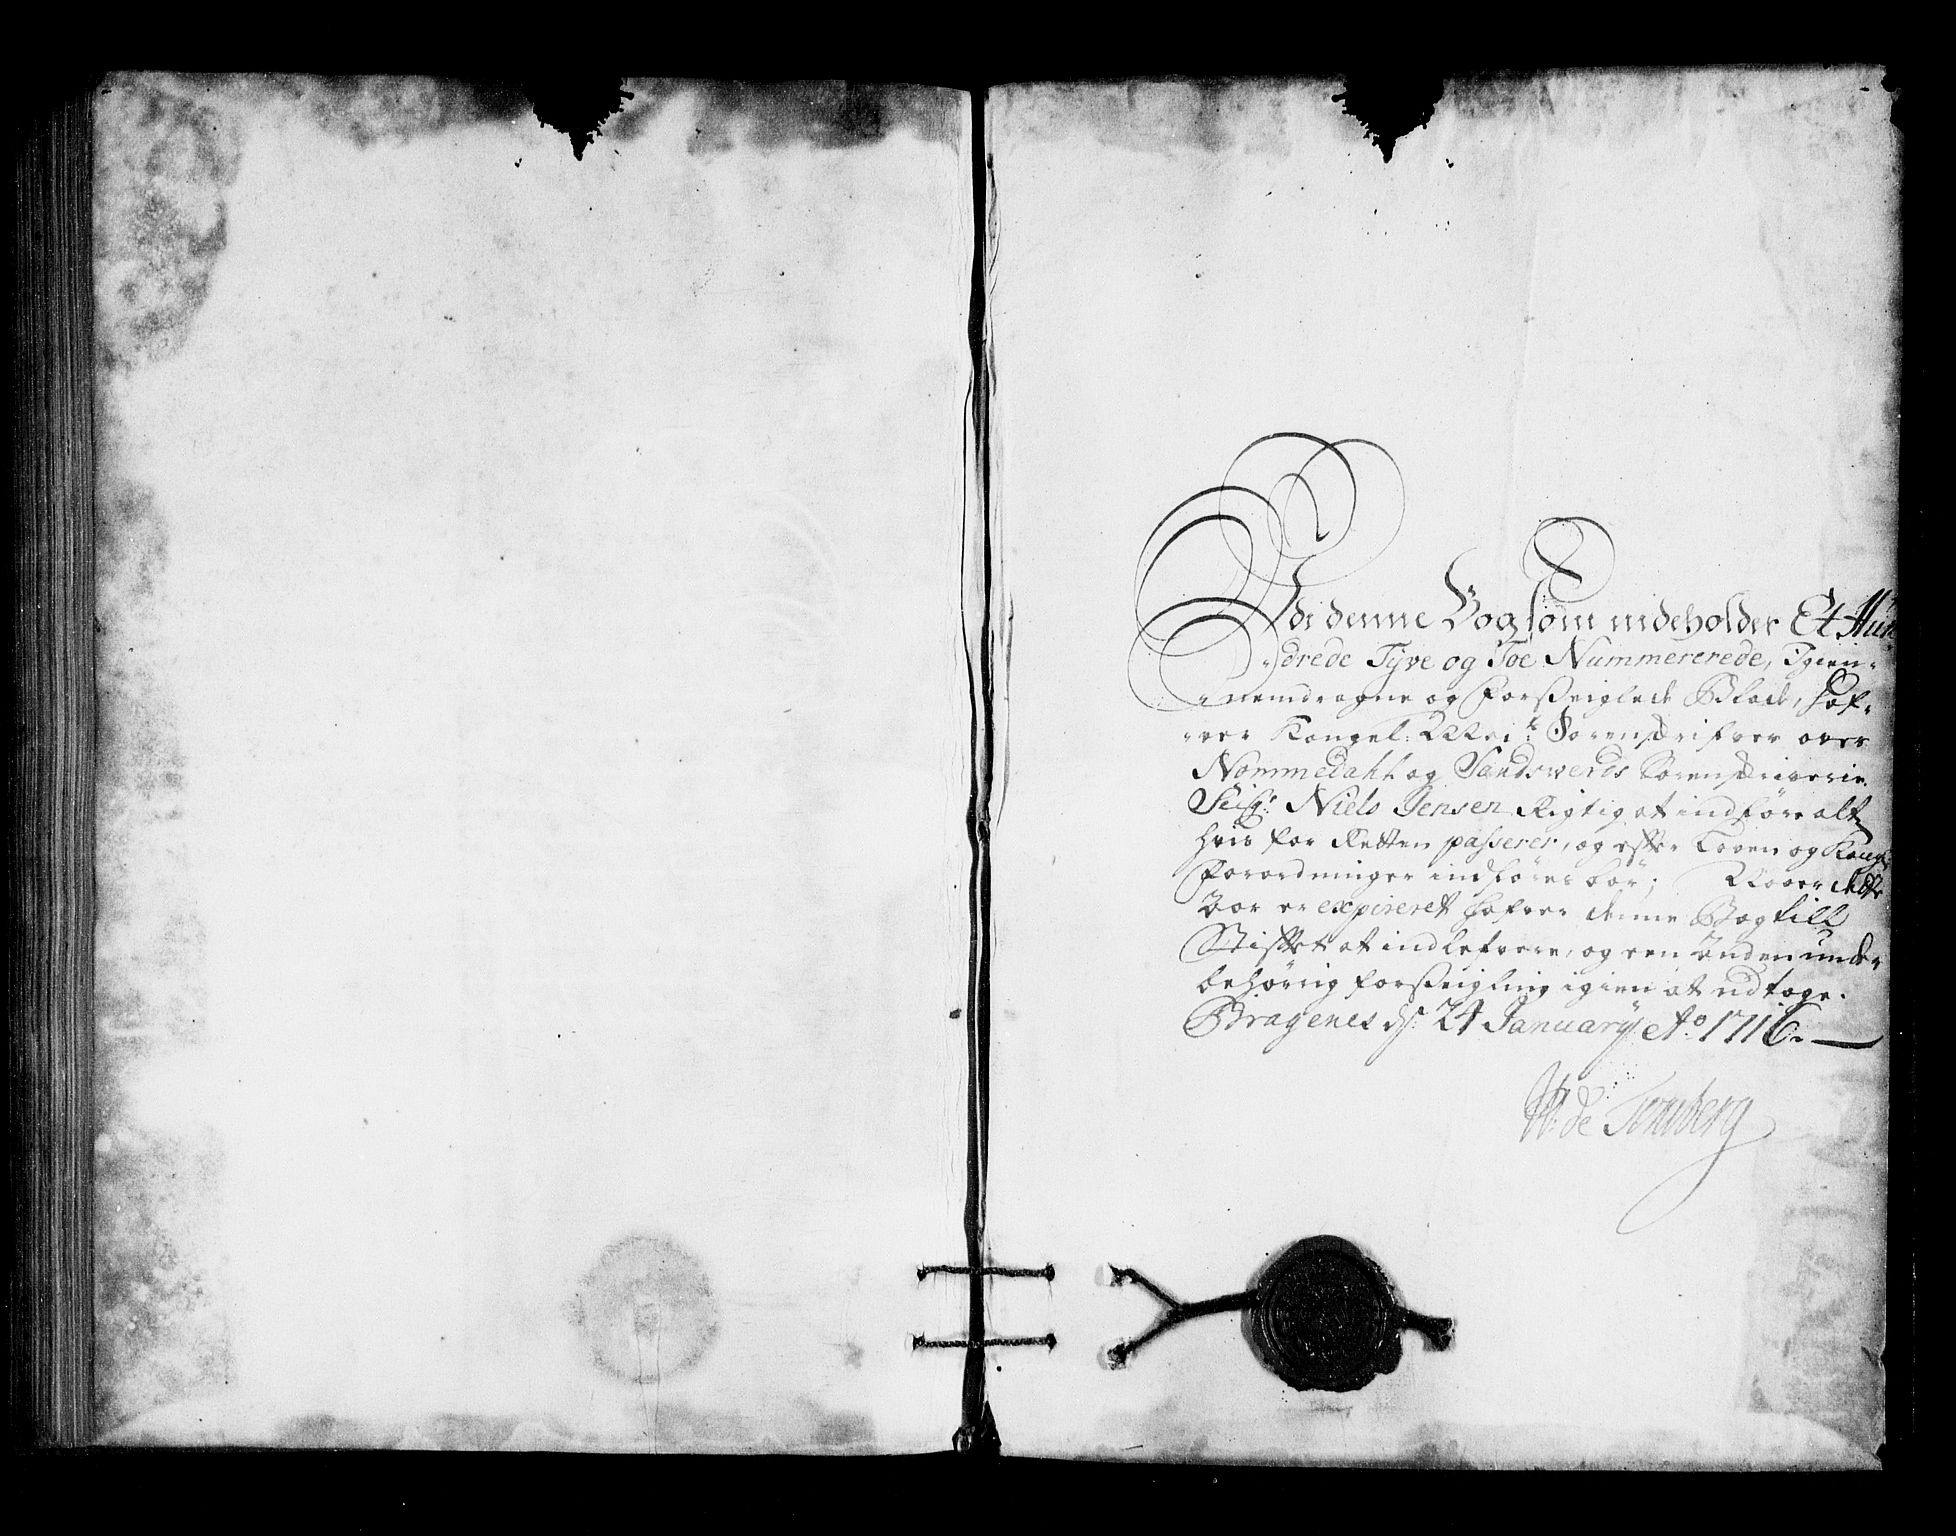 Udi denne Bog som indeholder Et Hun
drede Tyve og Toe Nummererede, Igien-
nemdragne og forseiglede Blade, hafv-
ver Kongel: May:ts Sorenskrifver over
Nommedahl og Sandswerds Sorenskriverie
Seigr: Niels Jensen Rigtig at indføre alt
hvis for Retten passerer, og efter Loven og Kongl:
Forordninger indføres bør; Naar dette
er expireret hafver denne Bog till
Stiftet at indlefvere, og een anden under
behørig forseigling igien at udtage.
Bragenes ds: 24 January Ao. 1716.
W: de Tonsberg